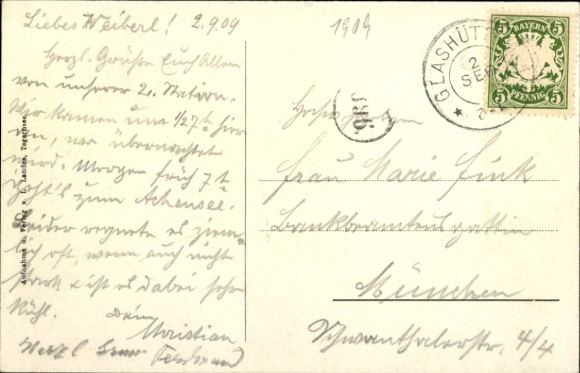 Liebes Weiberl! 2.9.09
Herzl. Grüße Euch Allen
von unserer 2. Station.
Wir kamen um 1/2 7 h hier
an, wo übernachtet
wird. Morgen früh 7 h
geht's zum Achensee.
Leider regnete es ziem-
lich oft, wenn auch nicht
stark & ist es dabei sehr
kühl. Dein
Herzl.
Aufnahme u. Verlag v. L. Landes, Tegernsee.
1909
GLASHÜT
2
SEP
BAYERN
5 5
PFENNIG
Frau Marie Fink
Bankbeamtensgattin
München
Schwanthalerstr. 4/4